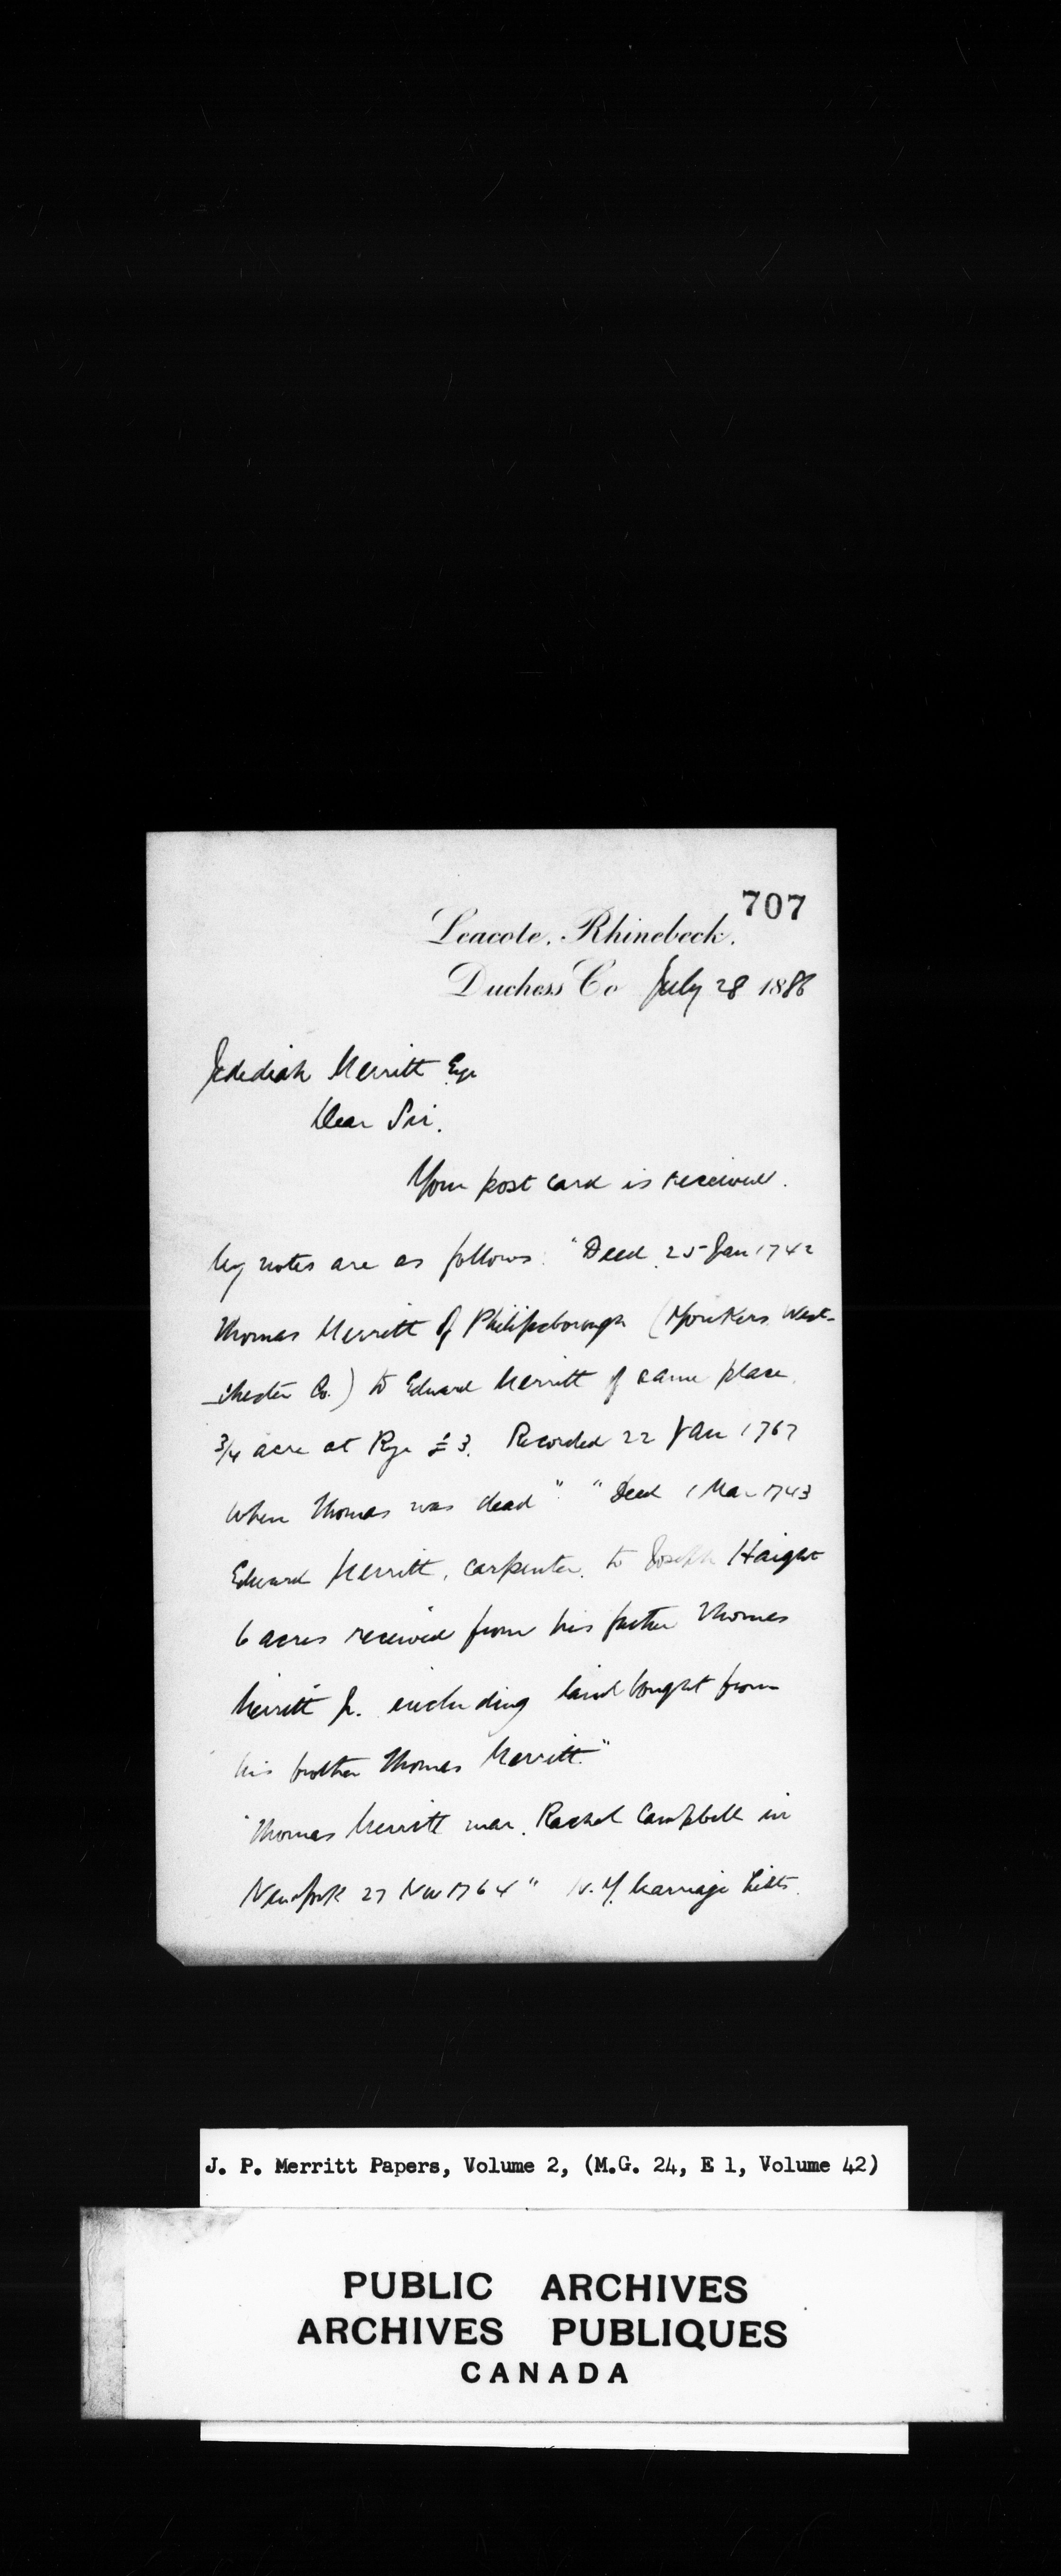 707
Leacote, Rhinebeck.
Duchess Co July 28 1886
Jedediah Merritt Esqr
Dear Sir.
Your post card is received.
My notes are as follows. "Deed 25 Jan 1742
Thomas Merritt of Philipseborough (Yonkers West-
-chester Co.) to Edward Merritt of same place.
3/4 acre at Rye £3. Recorded 22 Jan 1767
when Thomas was dead" "Deed 1 Mar 1743
Edward Merritt, carpenter, to Joseph Haight
6 acres received from his father Thomas
Merritt Jr. including land bought from
his brother Thomas Merritt."
"Thomas Merritt mar. Rachel Campbell in
New York 27 Nov 1764" N.Y. Marriage Lists.
J. P. Merritt Papers, Volume 2, (M.G. 24, E 1, Volume 42)
PUBLIC ARCHIVES
ARCHIVES PUBLIQUES
CANADA